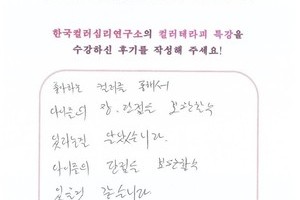 한국컬러심리연구소의 컬러테라피 특강을
수강하신 후기를 작성해 주세요!
좋아하는 컬러를 통해서
아이들의 장.단점을 보완할수
있다는걸 알았습니다.
아이들의 단점을 보완할수
있을것 같습니다